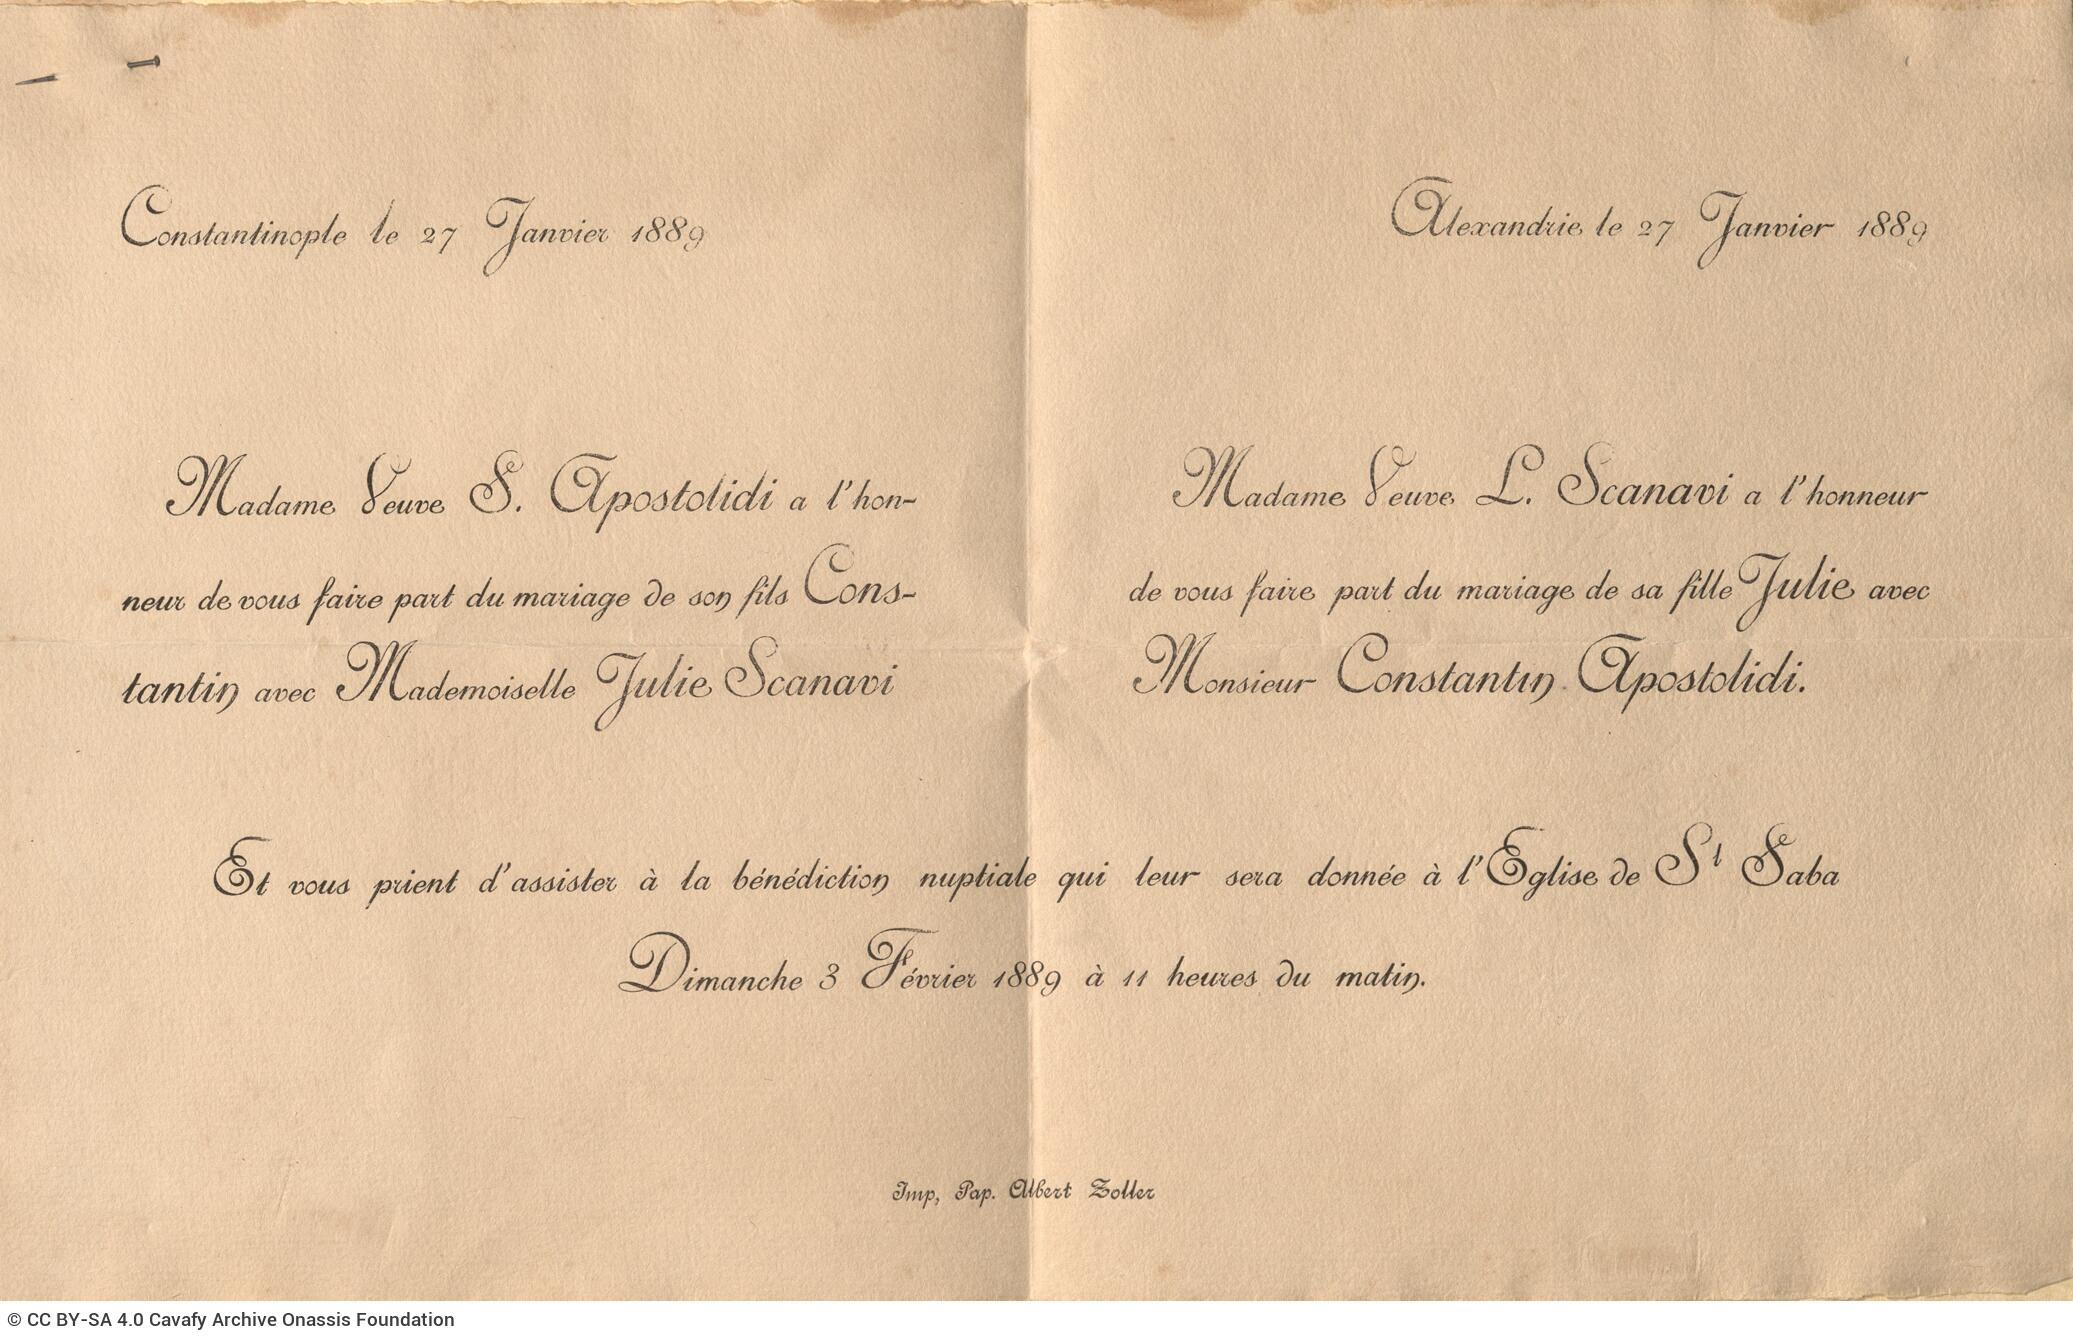 Constantinople le 27 Janvier 1889
Madame Veuve S. Apostolidi a l'hon-
neur de vous faire part du mariage de son fils Cons-
tantin avec Mademoiselle Julie Scanavi
Alexandrie le 27 Janvier 1889
Madame Veuve L. Scanavi a l'honneur
de vous faire part du mariage de sa fille Julie avec
Monsieur Constantin Apostolidi.
Et vous prient d'assister à la bénédiction nuptiale qui leur sera donnée à l'Eglise de St Saba
Dimanche 3 Février 1889 à 11 heures du matin.
Imp, Pap. Albert Zoller
© CC BY-SA 4.0 Cavafy Archive Onassis Foundation